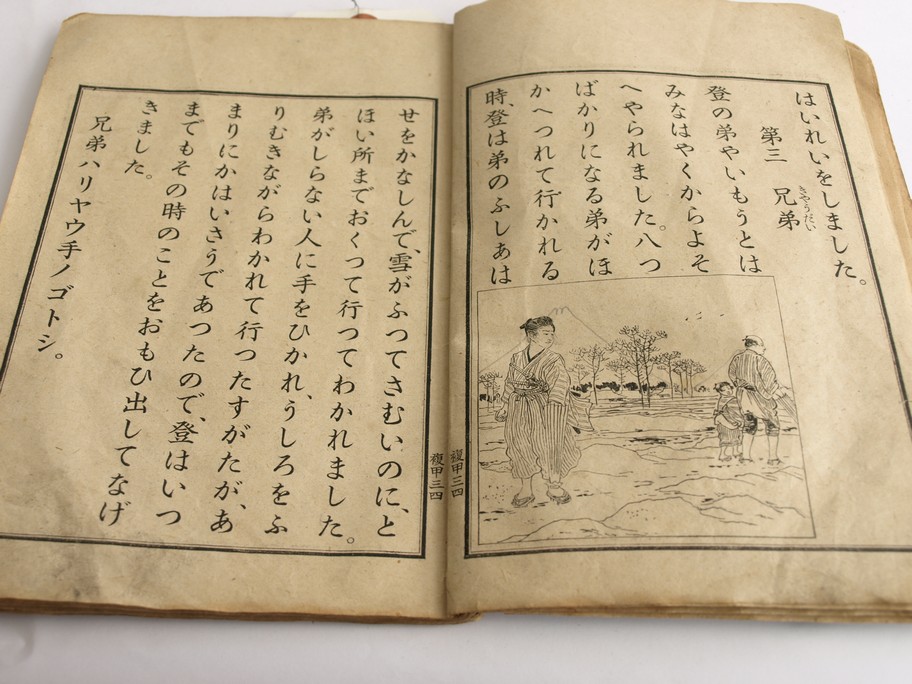 はいれいをしました。
第三 兄弟
きやうだい
登の弟やいもうとは
みなはやくからよそ
へやられました。八つ
ばかりになる弟がほ
かへつれて行かれる
時、登は弟のふしあは
複甲三四
複甲三四
せをかなしんで、雪がふつてさむいのに、と
ほい所までおくつて行つてわかれました。
弟がしらない人に手をひかれ、うしろをふ
りむきながらわかれて行つたすがたが、あ
まりにかはいさうであつたので、登はいつ
までもその時のことをおもひ出してなげ
きました。
兄弟ハリヤウ手ノゴトシ。